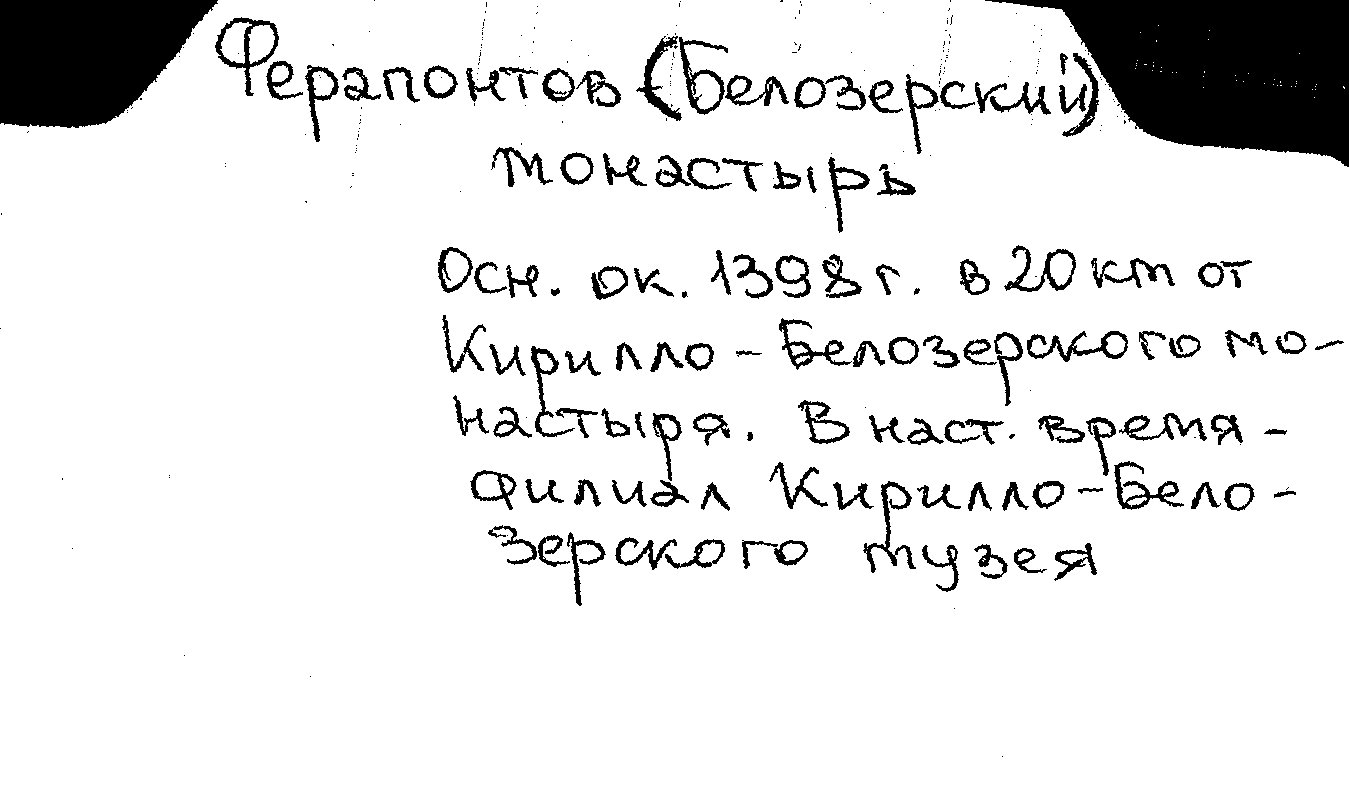 Ферапонтов (Белозерский)
монастырь
Осн. ок. 1398 г. в 20 км от
Кирилло-Белозерского мо-
настыря. В наст. время -
филиал Кирилло-Бело-
зерского музея